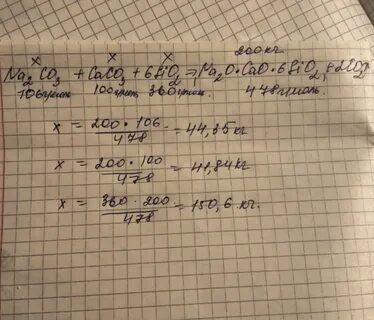 x x x 200 кг
Na₂CO₃ + CaCO₃ + 6SiO₂ → Na₂O·CaO·6SiO₂ + 2CO₂↑
106г/моль 100г/моль 360г/моль. 478г/моль.
x = 200 · 106 / 478 = 44,35 кг
x = 200 · 100 / 478 = 41,84 кг
x = 360 · 200 / 478 = 150,6 кг.